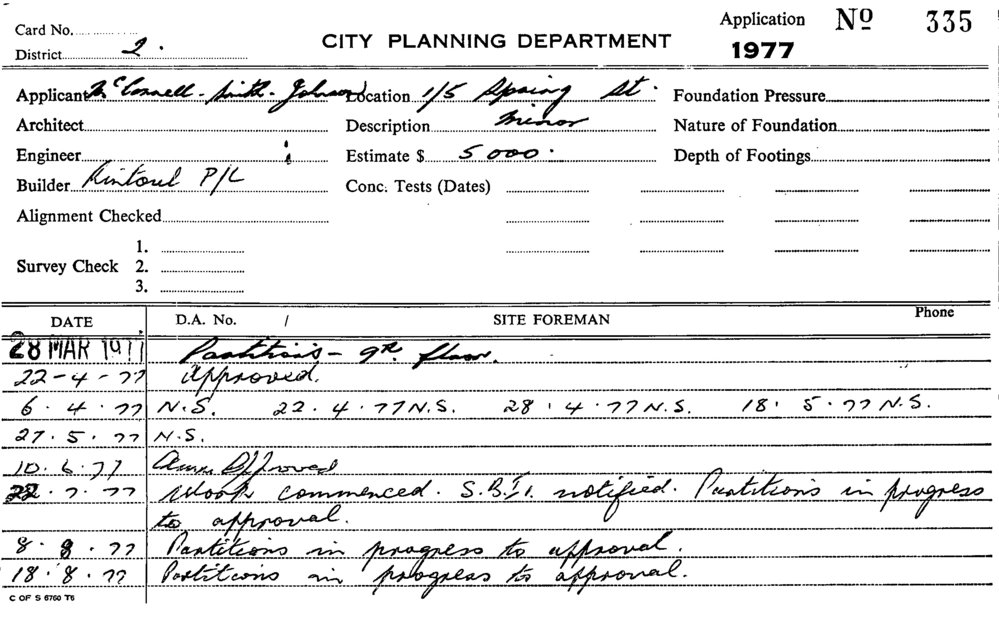 Card No.
District 2.
CITY PLANNING DEPARTMENT
Application No 335
1977
Applicant McConnell - Smith - Johnson Location 1/5 Spring St. Foundation Pressure
Architect Description Minor Nature of Foundation
Engineer Estimate $ 5000. Depth of Footings
Builder Rintoul P/L Conc. Tests (Dates)
Alignment Checked
Survey Check 1.
2.
3.
DATE D.A. No. / SITE FOREMAN Phone
28 MAR 1977 Partitions - 9th floor.
22-4-77 Approved.
6.4.77 N.S. 22.4.77 N.S. 28.4.77 N.S. 18.5.77 N.S.
27.5.77 N.S.
10.6.77 Approved
22.7.77 Work commenced. S.B.I. notified. Partitions in progress
to approval.
8.8.77 Partitions in progress to approval.
18.8.77 Partitions in progress to approval.
C OF S 6760 T6